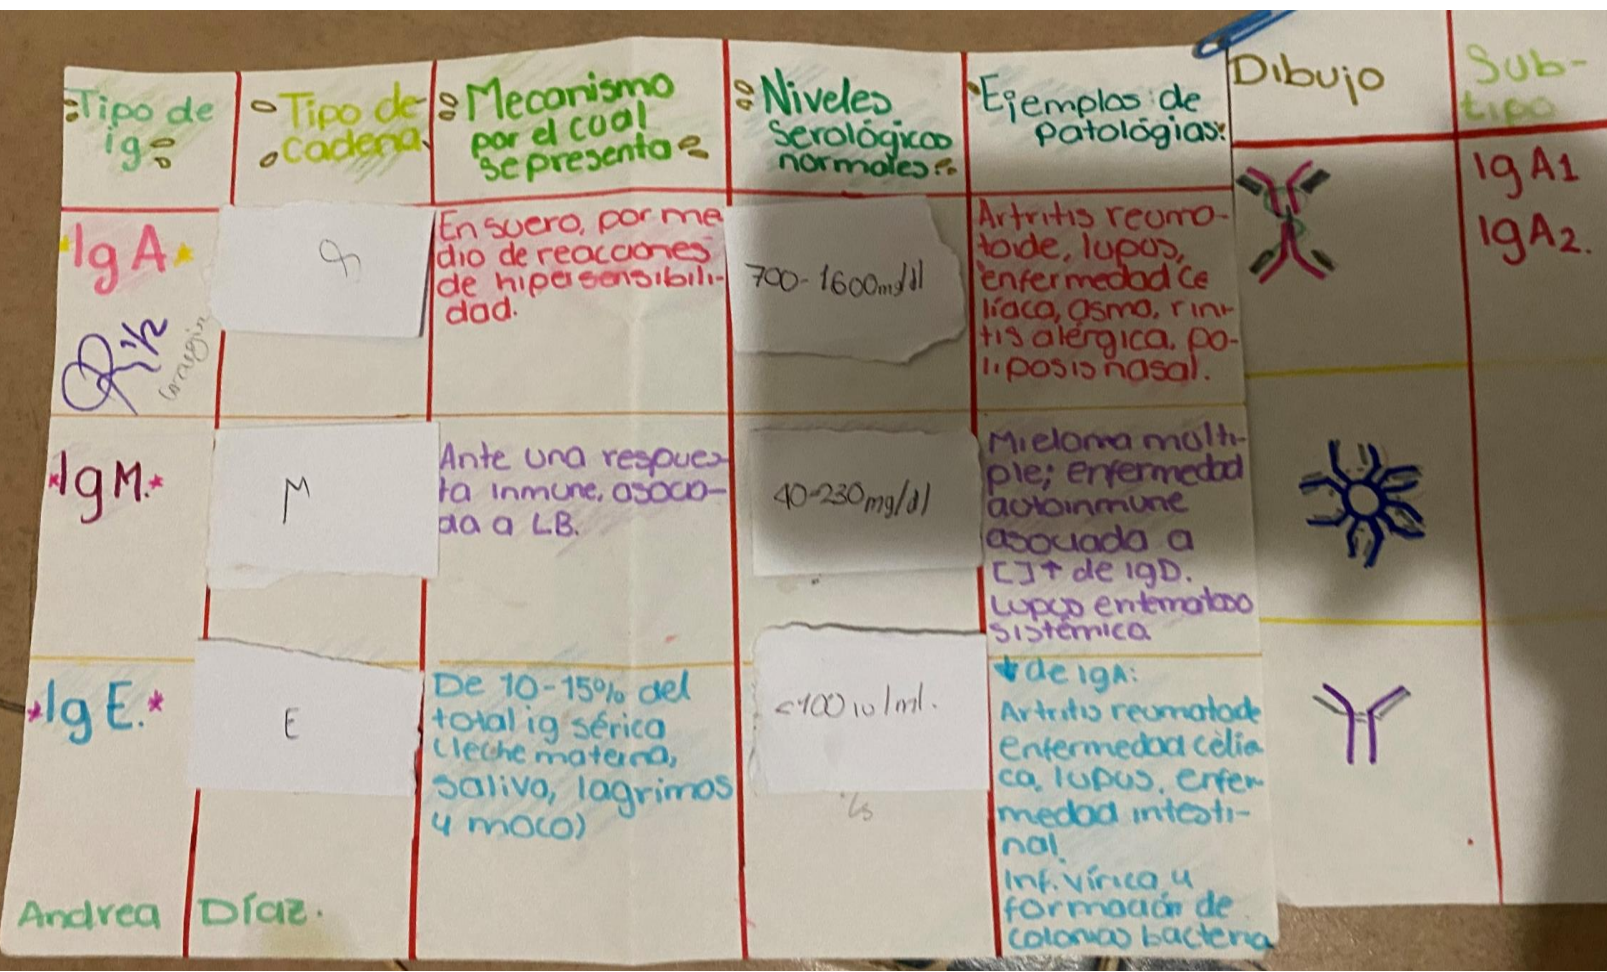 Tipo de
ig
Tipo de
cadena
Mecanismo
por el cual
se presenta
Niveles
serológicos
normales
Ejemplos de
patológias:
Dibujo
Sub-
tipo
IgA
En suero, por me
dio de reacciones
de hipersensibili-
dad.
700-1600mg/dl
Artritis reuma-
toide, lupus,
enfermedad ce
líaca, asma, rini-
tis alérgica, po-
liposis nasal.
IgA1
IgA2.
IgM.
M
Ante una respues-
ta inmune, asocia-
da a LB.
40-230mg/dl
Mieloma multi-
ple; enfermedad
autoinmune
asociada a
[]↑ de IgD.
Lupus eritematoso
sistémica
IgE.
E
De 10-15% del
total ig sérica
(leche materna,
saliva, lagrimas
y moco)
<100 iu/ml.
↓ de IgA:
Artritis reumatoide
enfermedad célia
ca, lupus, enfer
medad intesti-
nal
Inf. vírica y
formación de
colonias bacteria
Andrea Díaz.